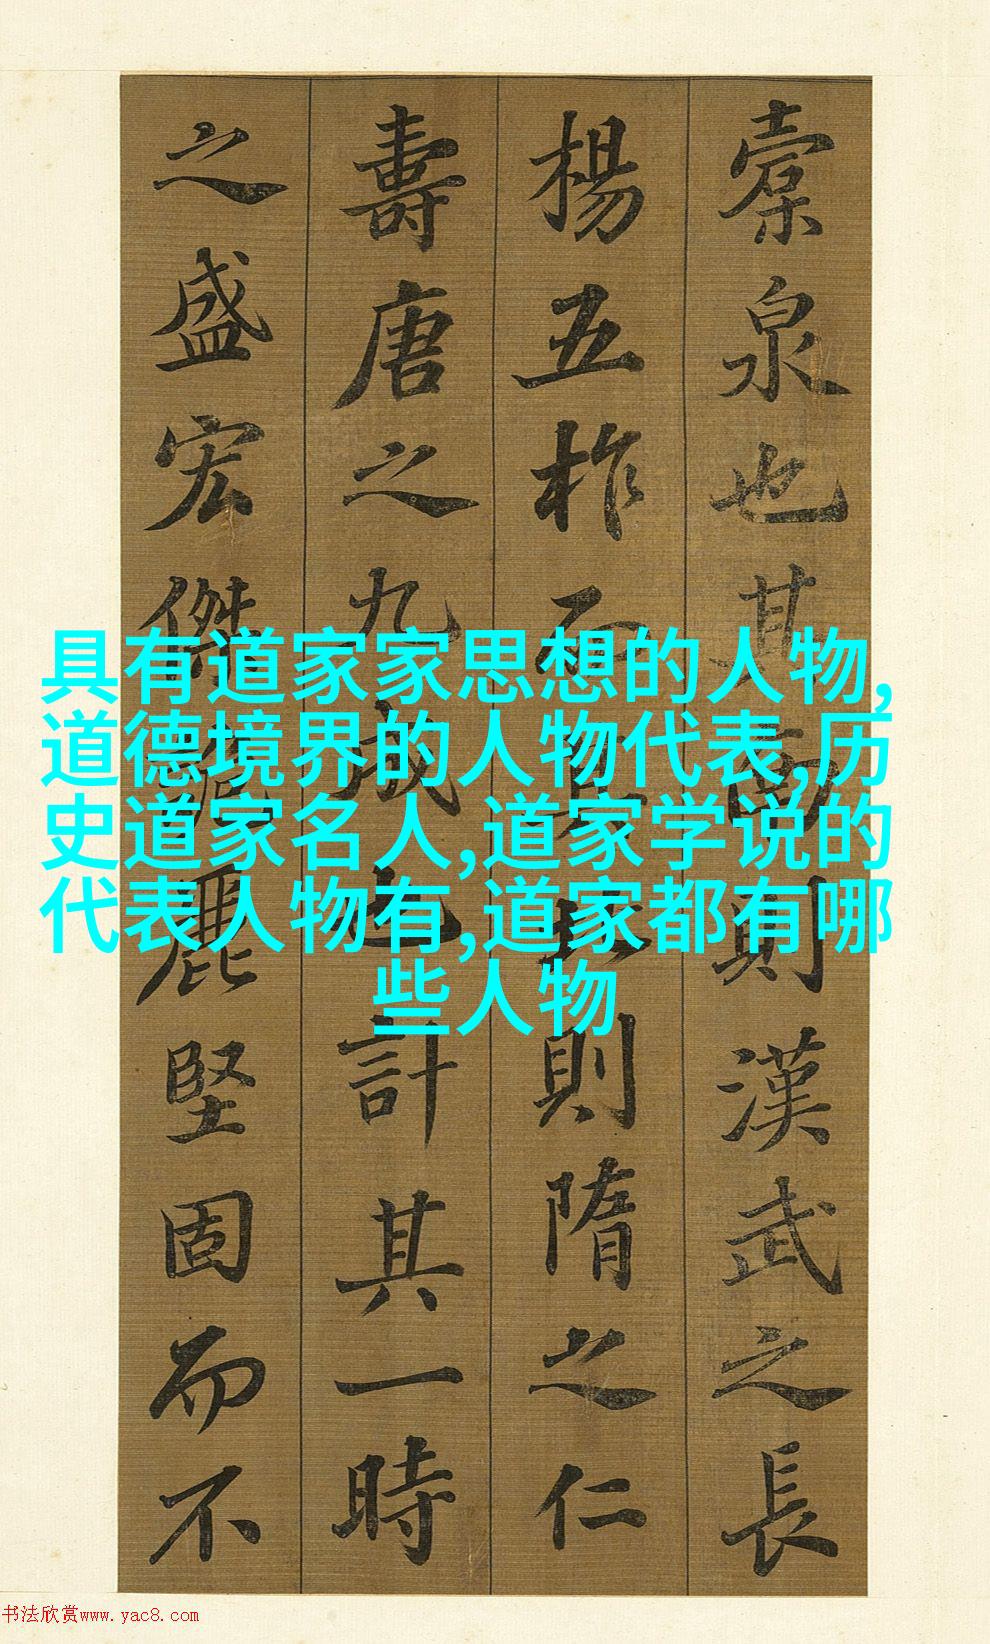 具有道家家思想的人物,
道德境界的人物代表,历
史道家名人,道家学说的
代表人物有,道家都有哪
些人物
橐泉也其南則漢武之長
楊五柞而其北則隋之仁
壽唐之九成也計其一時
之盛宏傑詭麗堅固而不
书法欣赏www.yac8.com